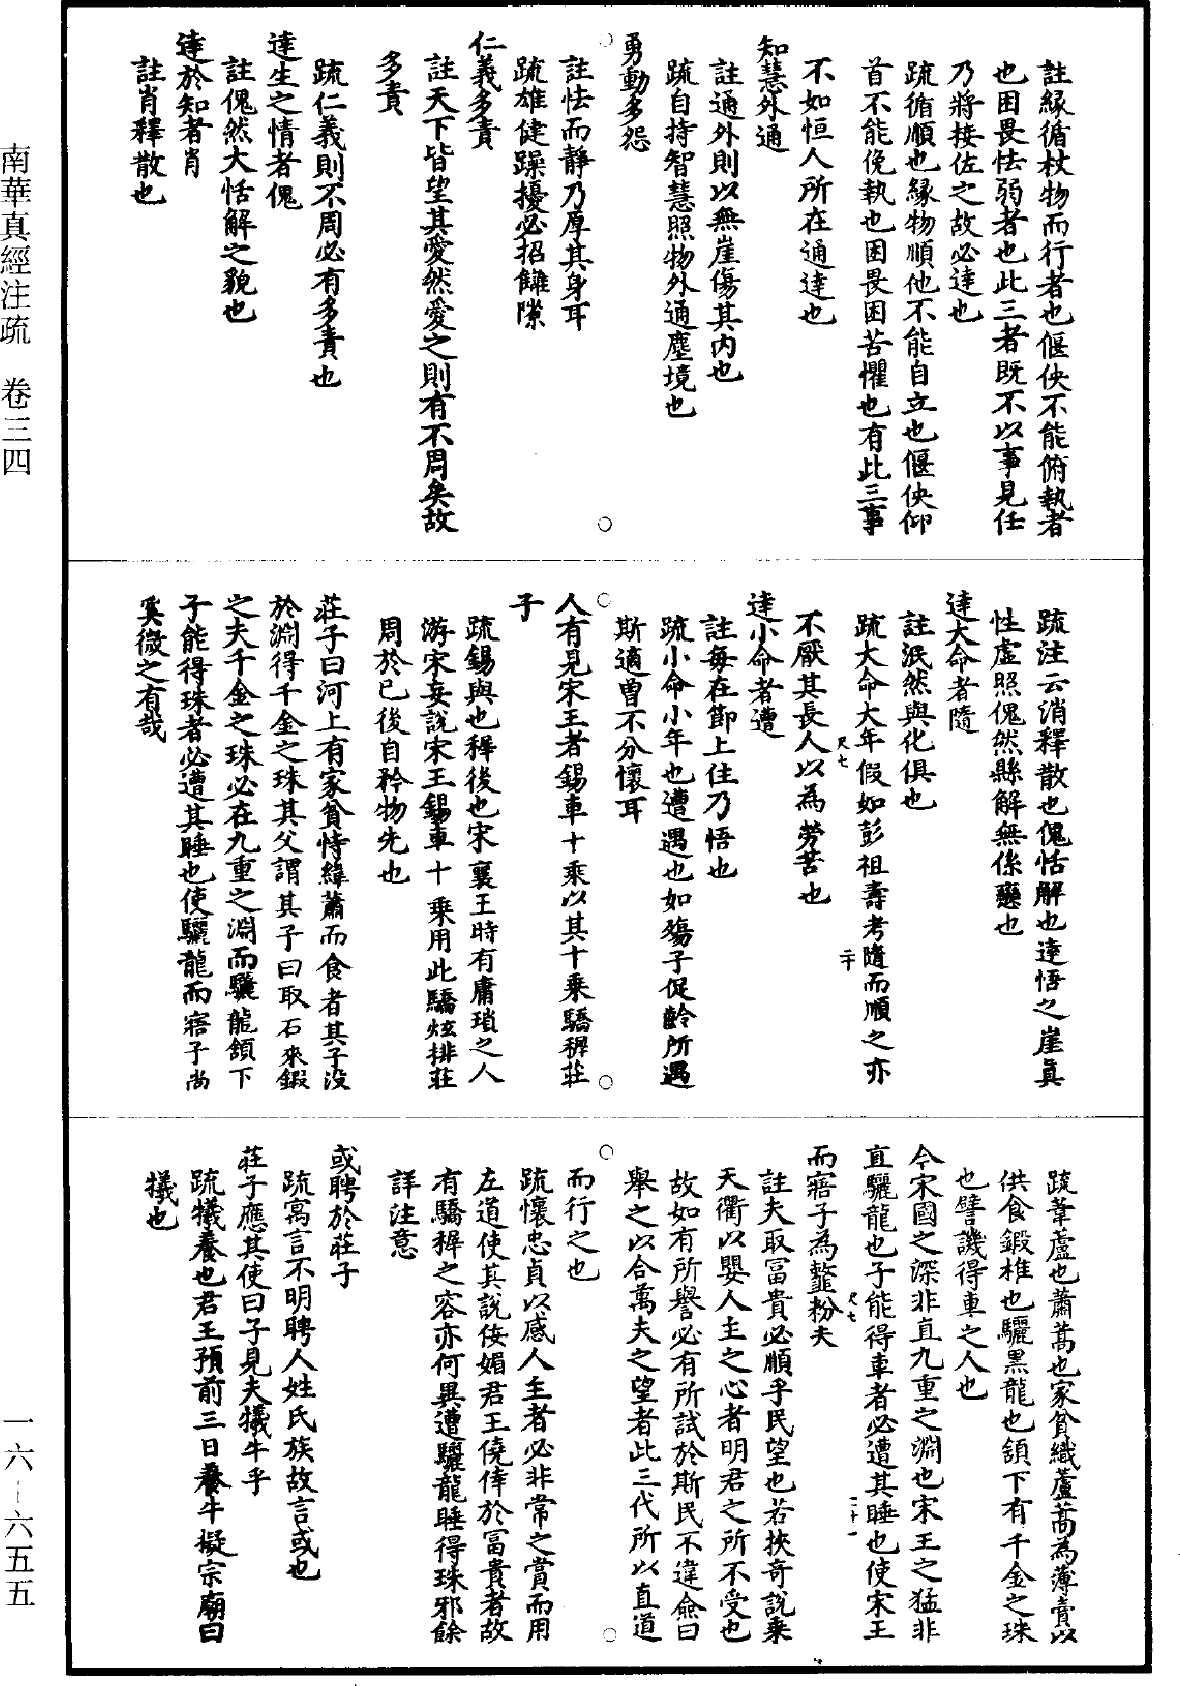 註緣循杖物而行者也偃佒不能俯執者
也困畏怯弱者也此三者既不以事見任
乃將接佐之故必達也
疏循順也緣物順他不能自立也偃佒仰
首不能俛執也困畏困苦懼也有此三事
不如恒人所在通達也
知慧外通
註通外則以無崖傷其內也
疏自持智慧照物外通塵境也
勇動多怨
註怯而靜乃厚其身耳
疏雄健躁擾必招讎隙
仁義多責
註天下皆望其愛然愛之則有不周矣故
多責
疏仁義則不周必有多責也
達生之情者傀
註傀然大恬解之貌也
達於知者肖
註肖釋散也
疏注云消釋散也傀恬解也達悟之崖真
性虛照傀然縣解無係戀也
達大命者隨
註泯然與化俱也
疏大命大年假如彭祖壽考隨而順之亦
不厭其長人以為勞苦也
尺七
二十
達小命者遭
註每在節上住乃悟也
疏小命小年也遭遇也如殤子促齡所遇
斯適曾不介懷耳
人有見宋王者錫車十乘以其十乘驕穉莊
子
疏錫與也穉後也宋襄王時有庸瑣之人
游宋妄說宋王錫車十乘用此驕炫排莊
周於已後自矜物先也
莊子曰河上有家貧恃緯蕭而食者其子沒
於淵得千金之珠其父謂其子曰取石來鍛
之夫千金之珠必在九重之淵而驪龍頷下
子能得珠者必遭其睡也使驪龍而寤子尚
奚微之有哉
疏葦蘆也蕭蒿也家貧織蘆蒿為薄賣以
供食鍛椎也驪黑龍也頷下有千金之珠
也譬譏得車之人也
今宋國之深非直九重之淵也宋王之猛非
直驪龍也子能得車者必遭其睡也使宋王
尺七
二十一
而寤子為虀粉夫
註夫取富貴必順乎民望也若挾奇說乘
天衢以嬰人主之心者明君之所不受也
故如有所譽必有所試於斯民不違僉曰
舉之以合萬夫之望者此三代所以直道
而行之也
疏懷忠貞以感人主者必非常之賞而用
左道使其說佞媚君王僥倖於富貴者故
有驕穉之容亦何異遭驪龍睡得珠邪餘
詳注意
或聘於莊子
疏寓言不明聘人姓氏族故言或也
莊子應其使曰子見夫犧牛乎
疏犧養也君王預前三日養牛擬宗廟曰
犧也
南華真經注疏　卷三四
一六－六五五